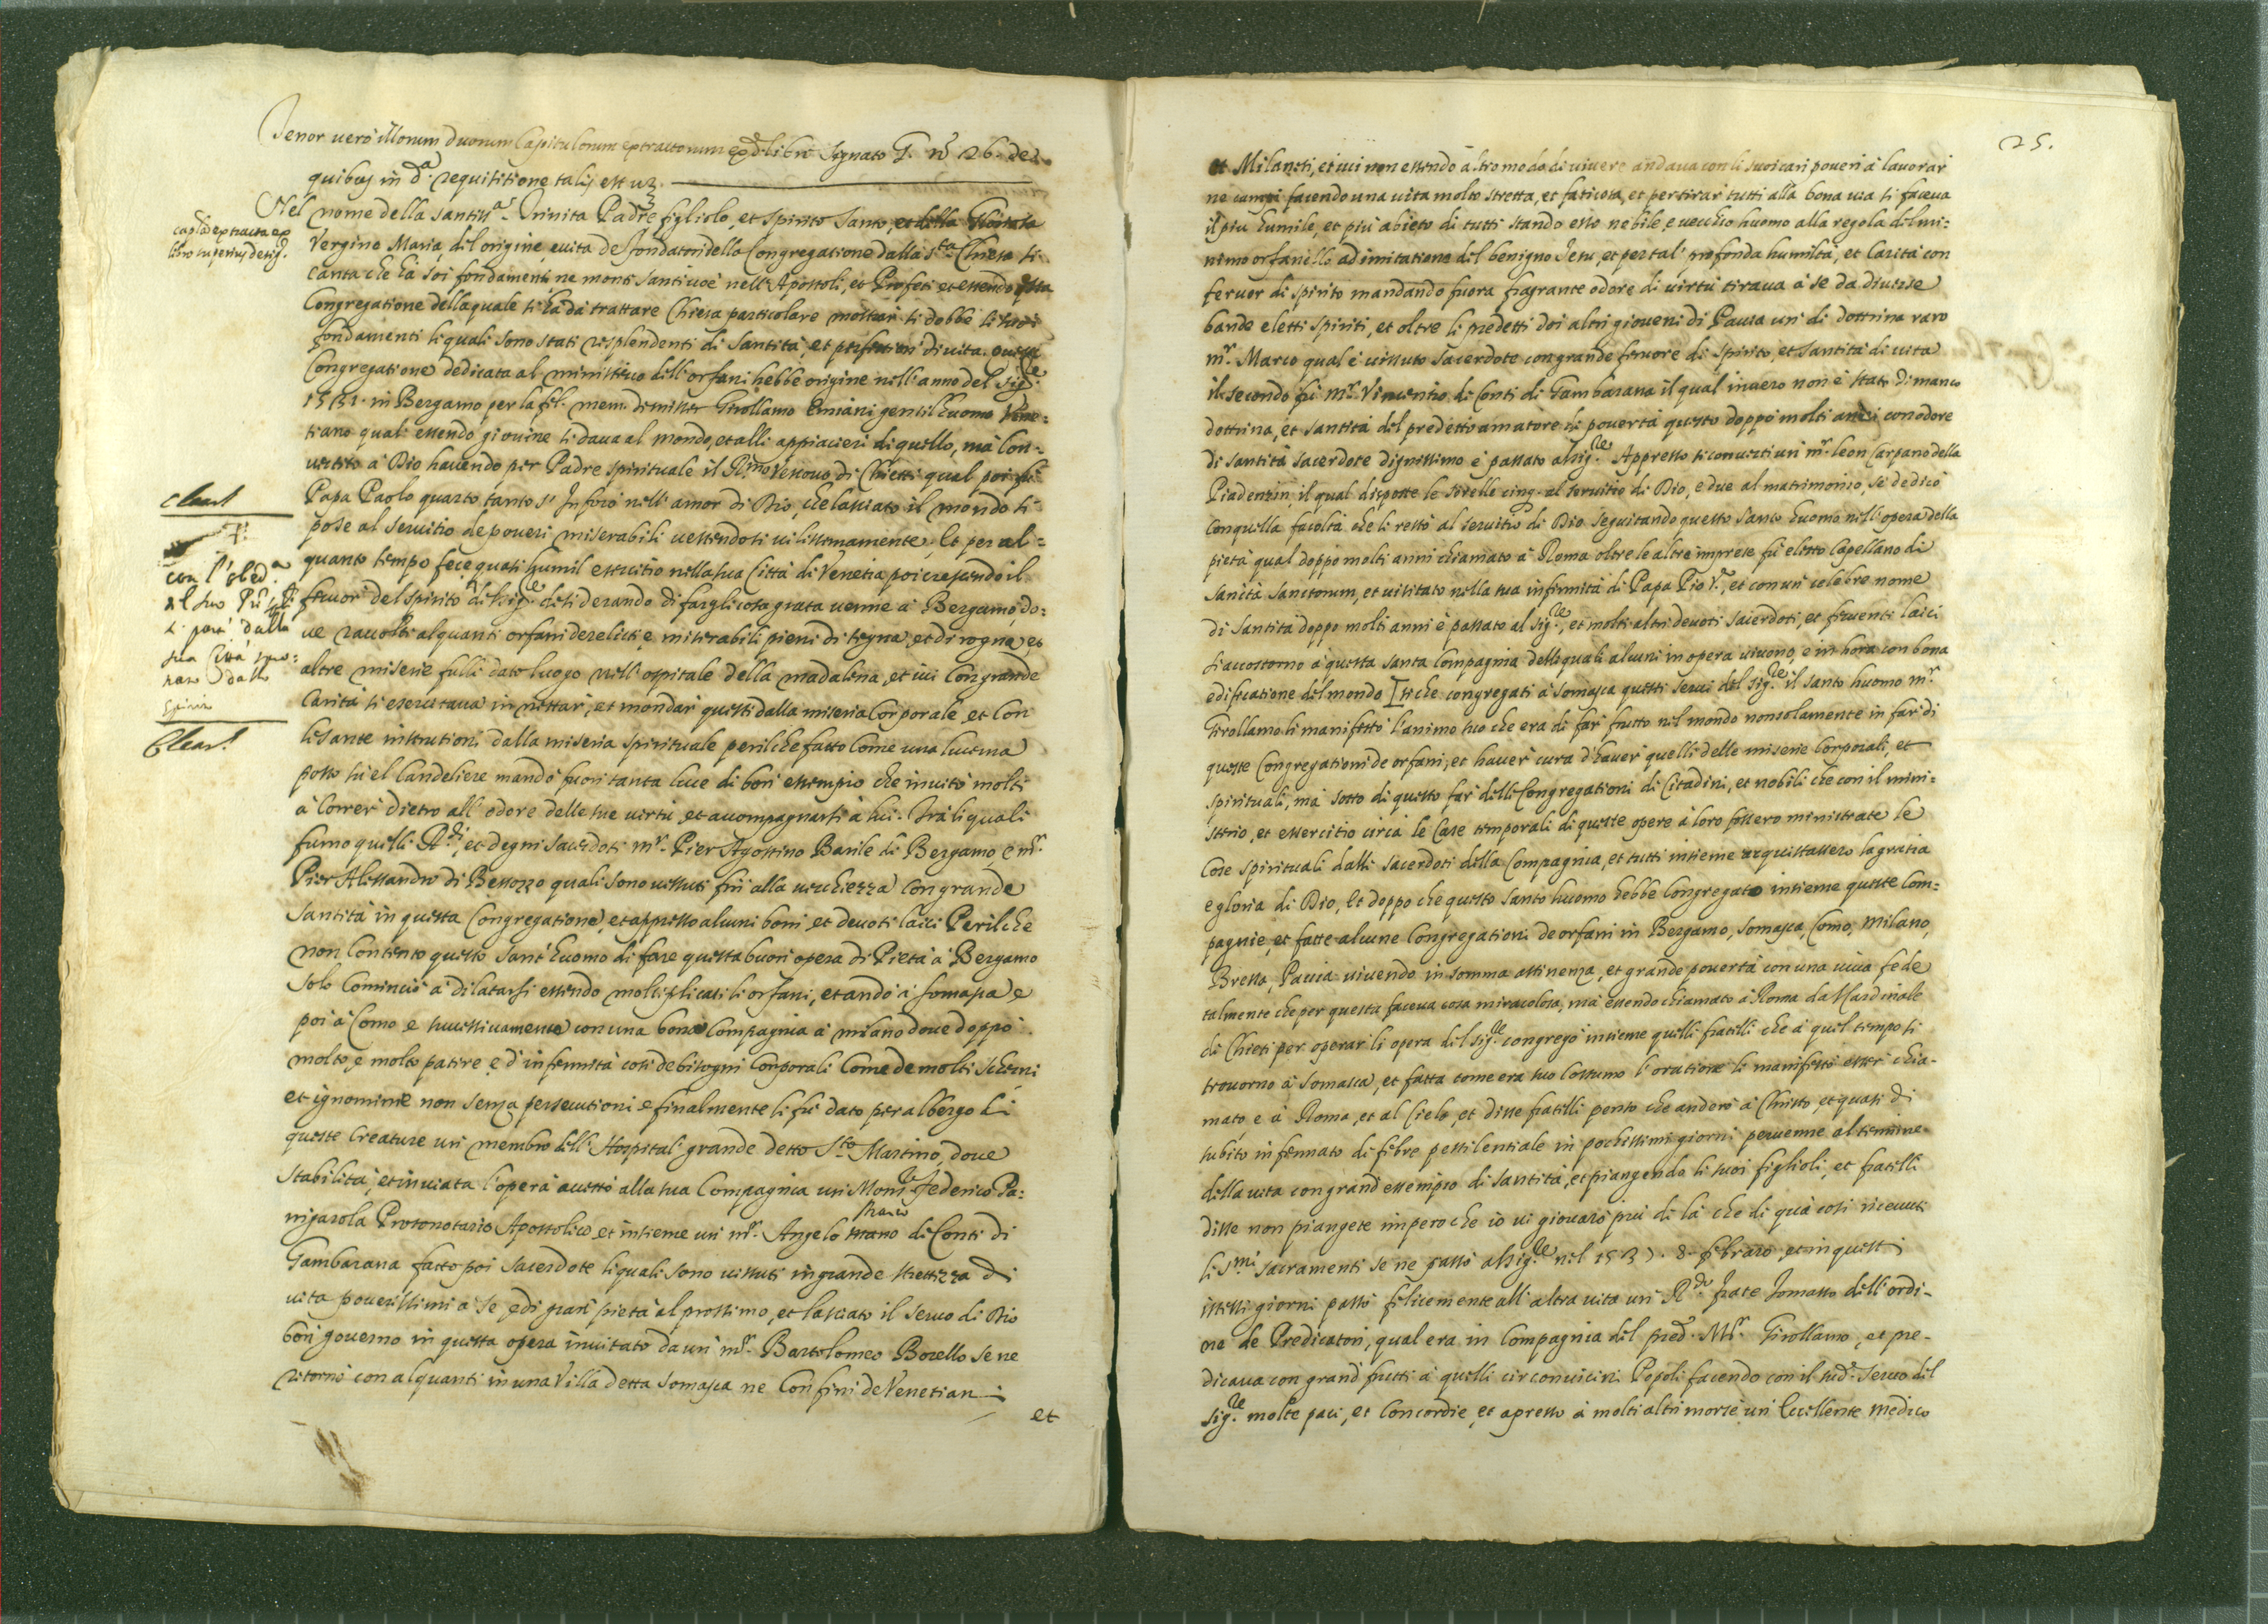 Tenor vero illorum duorum Capitulorum extractorum ex d.º libro signato G. nº 26. de
quibus in d.ª requisitione talis est uz.
Nel nome della santiss.ª Trinita Padre figliolo, et spirito santo, et della Gloriosa
Vergine Maria, del origine, e uita de fondatori della Congregatione dalla s.ta Chiesa si
canta che ha soi fondamenti ne monti santi cioè nelli Apostoli, et Profeti et essendo questa
Congregatione della quale si ha da trattare Chiesa particolare mostrar si debbe li suoi
fondamenti li quali sono stati risplendenti di santità, et perfettion di uita. questa
Congregatione dedicata al ministero dell'orfani hebbe origine nell'anno del sig.re
1531. in Bergamo per la fel. mem. di misser Girollamo Emiani gentilhuomo Vene=
tiano quali essendo giouine si daua al mondo, et alli appiaceri di quello, mà con=
uertito à Dio hauendo per Padre spirituale il R.mo Vescouo di Chietti qual poi fù
Papa Paolo quarto, tanto s'inferuorò nell'amor di Dio, che lasciato il mondo si
pose al seruitio de poueri miserabili uestendosi uilissimamente. Et per al=
quanto tempo fece quasi humil essercitio nella sua Città di Venetia poi crescendo il
feruor del spirito del sig.re desiderando di fargli cosa grata uenne à Bergamo, do=
ue raccolti alquanti orfani derelicti, e miserabili pieni di tegna, et di rogna, et
altre miserie fulli dato luogo nell'ospitale della madalena, et iui con grande
carità si esercitaua in nettar, et mondar questi dalla miseria corporale et con
le sante institutioni dalla miseria spirituale perilche fatto come una lucerna
posto sù el candeliere mandò fuori tanta luce di bon essempio che inuitò molti
à correr dietro all'odore delle sue uirtù et accompagnarsi à lui. Trà li quali
furno quelli R.di, et degni sacerdoti m.r Pier Agostino Barile di Bergamo e m.r
Pier Alessandro di Besozzo quali sono uissuti fin alla uecchiezza con grande
santità in questa Congregatione, et appresso alcuni boni et deuoti laici Perilche
non contento questo sant'huomo di fare questa buon opera di Pietà à Bergamo
solo cominciò à dilatarsi essendo moltiplicati li orfani, et andò à somasca e
poi à Como e successiuamente con una bona compagnia à milano doue doppò
molto, e molto patire e d'infermità così de bisogni corporali come de molti scherni
et ignominie non senza persecutioni e finalmente li fù dato per albergo di
queste creature un membro dell'Hospital grande detto S.to Martino, doue
stabilita, et inuiata l'opera aueste alla sua Compagnia un Mons.re Federico Pa=
nigarola Protonotario Apostolico et insieme un m.r Angelo Marco di Conti di
Gambarana fatto poi sacerdote li quali sono uissuti in grande strettezza di
uita pouerissimi à se e di gran pietà al prossimo, et lasciato il seruo di Dio
bon gouerno in questa opera inuitato da un m.r Bartolomeo Borello se ne
ritornò con alquanti in una Villa detta somasca ne Confini de Venetiani
et
cap.la extracta ex
libro superius desig.
con l'obed.ª
del suo
si partì dalla
sua Città
25.
et Milanesi, et iui non essendo altro modo di uiuere andaua con li suoi cari poueri à lauorar
ne campi facendo una uita molto stretta, et faticosa, et per tirar tutti alla bona uia si faceua
il più humile, et più abieto di tutti stando esso nobile, e uecchio huomo alla regola del mi=
nimo orfanello ad imitatione del benigno Jesu, et per tal profonda humiltà, et Carità con
feruor di spirito mandando fuora fragrante odore di uirtù tiraua à se da diuerse
bande eletti spiriti, et oltre li predetti doi altri gioueni di Pauia un di dottrina raro
m.r Marco qual è uissuto sacerdote con grande feruore di spirito, et santità di uita
il secondo fù m.r Vincentio di Conti di Gambarana il qual inuero non è stato di manco
dottrina, et santità del predetto amatore di pouertà questo doppò molti anni con odore
di santità sacerdote dignissimo è passato al sig.re Appresso si conuertì un m.r leon Carpano della
Piadentin, il qual disposte le sorelle cinq. al seruitio di Dio, e due al matrimonio, si dedicò
con quella facoltà che li restò al seruitio di Dio seguitando questo santo huomo nell'opera della
pietà qual doppò molti anni chiamato à Roma oltre le altre imprese fù eletto Capellano di
sancta sanctorum, et uisitato nella sua infirmità di Papa Pio V.º, et con un celebre nome
di santità doppò molti anni è passato al sig.re, et molti altri deuoti sacerdoti, et feruenti laici
si accostorno à questa santa Compagnia delli quali alcuni in opera uiuono, e in hora con bona
edificatione del mondo Siche congregati à somasca questi serui del sig.re il santo huomo m.r
Girollamo li manifestò l'animo suo che era di far frutto nel mondo non solamente in far di
queste Congregationi de orfani, et hauer cura d'hauer quelli delle miserie corporali, et
spirituali, mà sotto di questo far delle Congregationi di Citadini, et nobili che con il mini=
sterio, et essercitio circa le Cose temporali di queste opere à loro fossero ministrate le
Cose spirituali dalli sacerdoti della Compagnia, et tutti insieme acquistassero la gratia
e gloria di Dio, Et doppo che questo santo huomo hebbe congregato insieme queste Com=
pagnie, et fatte alcune Congregationi de orfani in Bergamo, somasca, Como, Milano,
Bressa, Pauia uiuendo in somma astinenza, et grande pouertà con una uiua fede
talmente che per questa faceua cosa miracolosa, mà essendo chiamato à Roma da Cardinale
di Chieti per operar li opera del sig.re congregò insieme quelli fratelli che à quel tempo si
trouorno à Somasca, et fatta come era suo costumo l'oratione li manifestò esser chia-
mato e à Roma, et al Cielo, et disse fratelli penso che anderò à Christo, et quasi di
subito infermato di febre pestilentiale in pochissimi giorni peruenne al termine
della uita con grand essempio di santità, et piangendo li suoi figlioli, et fratelli
disse non piangete impero che io ui giouarò più di là che di quà così riceuuti
li s.mi sacramenti se ne passò al sig.re nel 1537. 8. febraro et in questi
istessi giorni passò felicemente all'altra uita un R.do frate Tomasso dell'ordi-
ne de Predicatori, qual era in Compagnia del pred.º M.r Girollamo, et pre-
dicaua con grand frutti à quelli circonuicini Popoli facendo con il sud.º seruo del
sig.re molte paci, et Concordie, et apresso à molti altri morse un eccellente medico